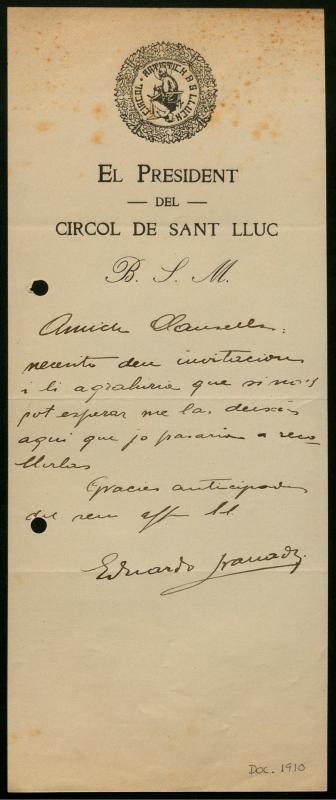 CIRCOL ARTISTICH D S. LLUCH
EL PRESIDENT
— DEL —
CIRCOL DE SANT LLUC
B. S. M.
Amich Clausells:
necesito deu invitacions
i li agrahiria que si no's
pot esperar me las deixés
aqui que jo pasaria a reco
llirlas
Gracies anticipades
del seu aff
Eduardo Granados.
DOC. 1910